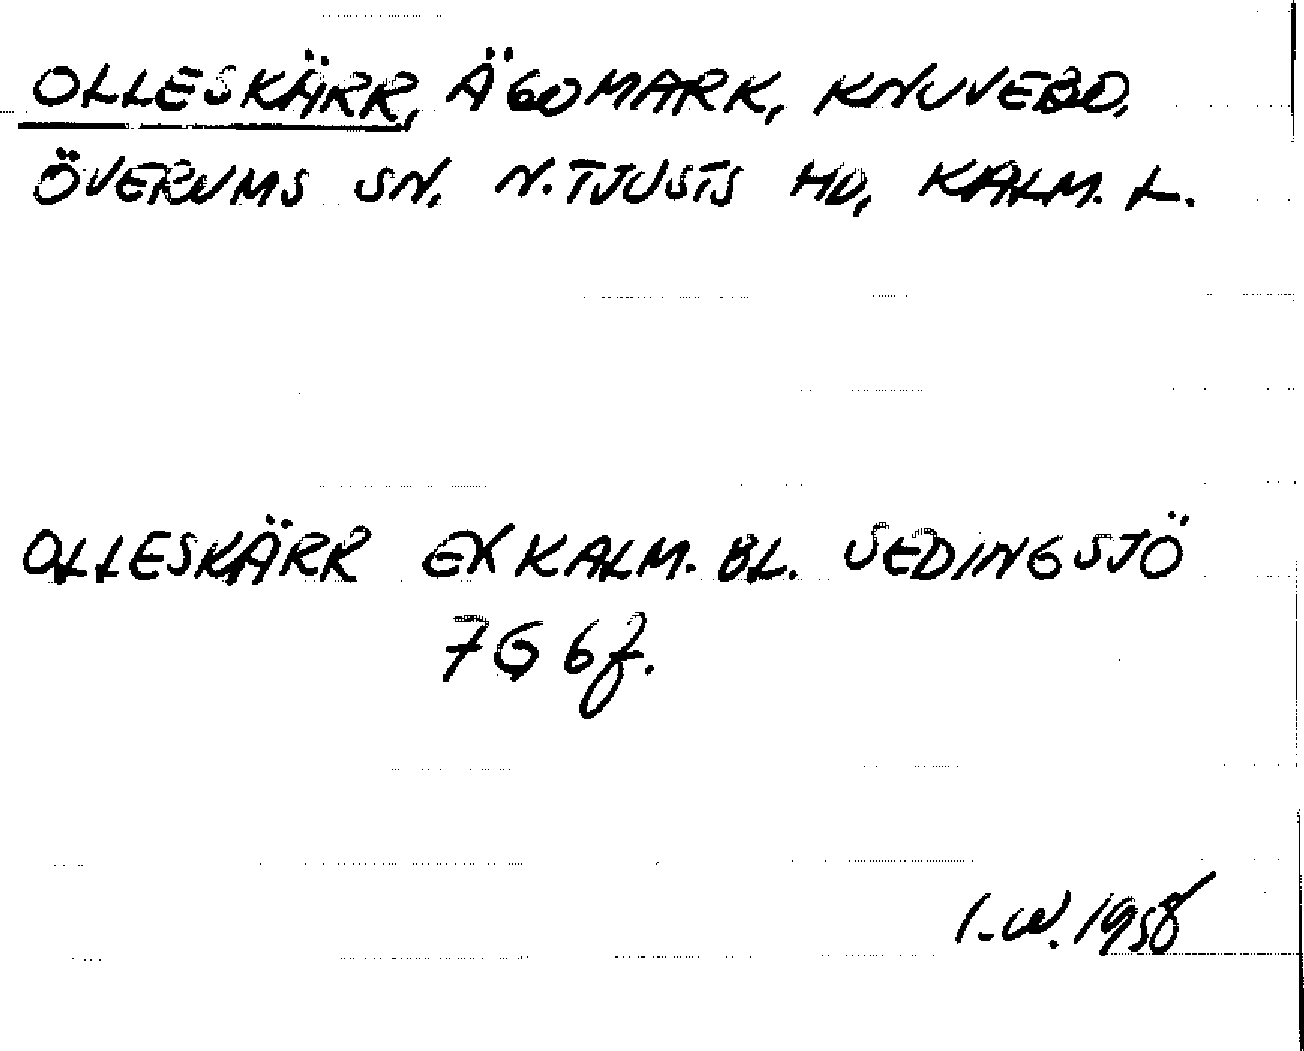 OLLESKÄRR, ÄGOMARK, KNUVEBO,
ÖVERUMS SN. N. TJUSTS HD, KALM. L.
OLLESKÄRR EK KALM. BL. SEDINGSJÖ
7G 6f.
I.W. 1958